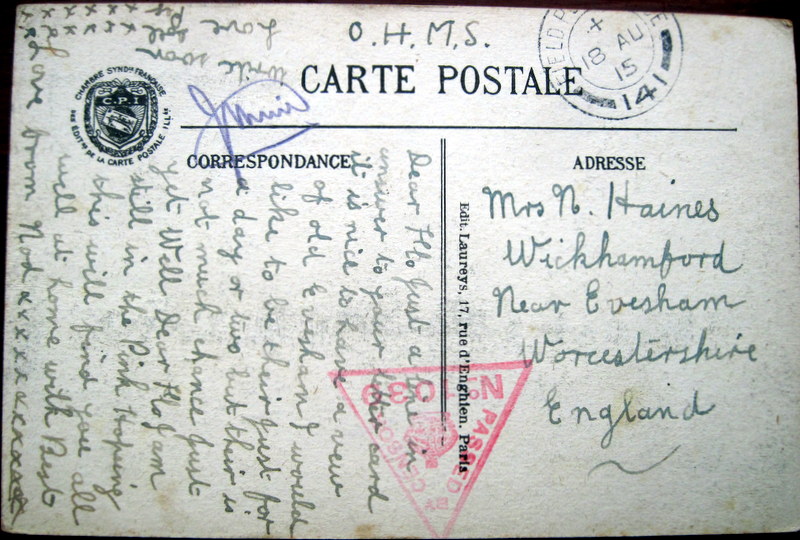 O.H.M.S.
CARTE POSTALE
FIELD POST OFFICE
X
18 AU
15
141
CHAMBRE SYNDle FRANÇAISE
C.P.I
DES ÉDITrs DE LA CARTE POSTALE ILLée
CORRESPONDANCE
ADRESSE
Mrs N. Haines
Wickhamford
Near Evesham
Worcestershire
England
Edit. Laureys, 17, rue d'Enghien, Paris
PASSED BY CENSOR
No 1039
Dear Flo Just a line in
answer to your letter card
it is nice to have a view
of old Evesham I would
like to be their Just for
a day or two but their is
not much chance Just
yet Well Dear Flo I am
still in the Pink Hoping
this will find you all
well at home with Best
Love from Nod xxxxxxxxxxxx
write soon
love